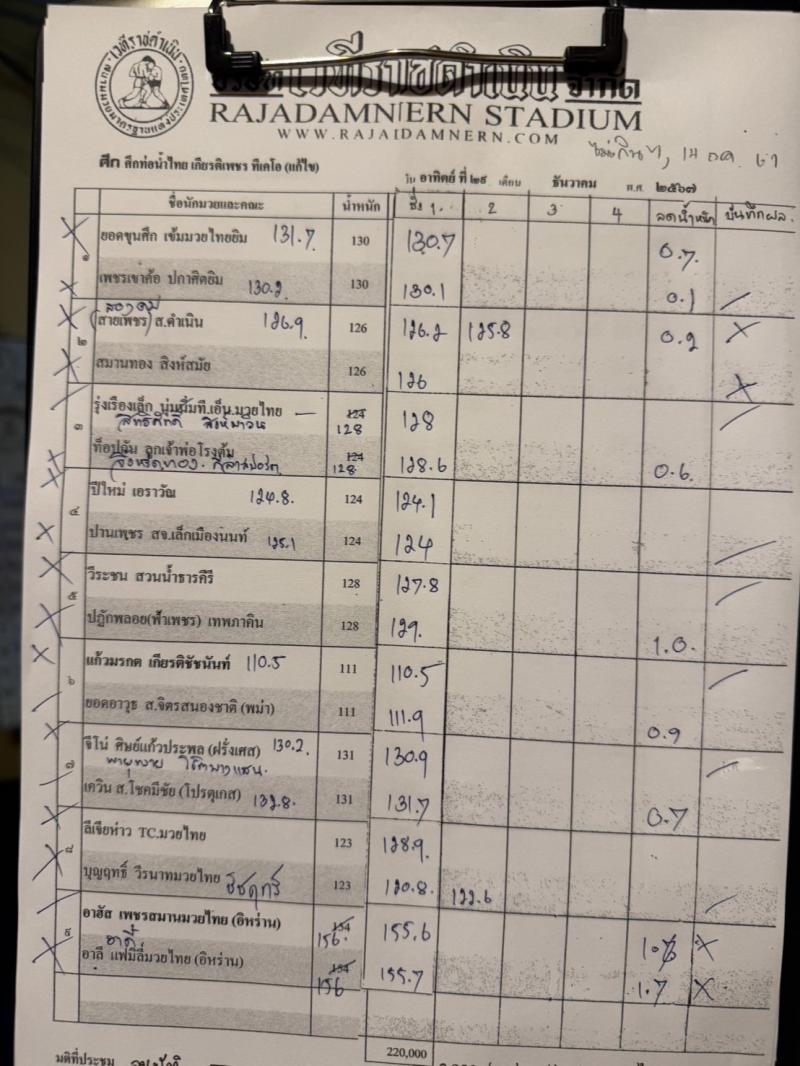 เวทีราชดำเนิน
จำกัด
RAJADAMNERN STADIUM
WWW.RAJADAMNERN.COM
14 ธค. 67
ศึก ศึกท่อน้ำไทย เกียรติเพชร ทีเคโอ (แก้ไข)
วัน อาทิตย์ ที่ ๒๙ เดือน ธันวาคม พ.ศ. ๒๕๖๗
ชื่อนักมวยและคณะ น้ำหนัก ชั่ง 1. 2 3 4 ลดน้ำหนัก บันทึกผล.
๑ ยอดขุนศึก เข้มมวยไทยยิม 131.7 130 130.7 0.7
เพชรเขาค้อ ปกาศิตยิม 130.2 130 130.1 0.1
๒ (สายเพชร) ส.ดำเนิน 126.9 126 126.2 125.8 0.2
สมานทอง สิงห์สมัย 126 126
๓ รุ่งเรืองเล็ก นุ่มนิ่มที.เอ็น.มวยไทย 124 128 128
ท็อปฉัน ลูกเจ้าพ่อโรงต้ม 124 128 128.6 0.6
๔ ปีใหม่ เอราวัณ 124.8 124 124.1
ปานเพชร สจ.เล็กเมืองนนท์ 125.1 124 124
๕ วีระชน สวนน้ำธารคีรี 128 127.8
ปฏักพลอย(ฟ้าเพชร) เทพภาคิน 128 129. 1.0
๖ แก้วมรกต เกียรติชัชนันท์ 110.5 111 110.5
ยอดอาวุธ ส.จิตรสนองชาติ (พม่า) 111 111.9 0.9
๗ จีโน่ ศิษย์แก้วประพล (ฝรั่งเศส) 130.2 131 130.9
เควิน ส.โชคมีชัย (โปรตุเกส) 132.8 131 131.7 0.7
๘ ลีเจียห่าว TC.มวยไทย 123
บุญฤทธิ์ วีรนาทมวยไทย 123 122.6
๙ อาฮัส เพชรสมานมวยไทย (อิหร่าน) 154 156 155.6
อาลี แฟมิลี่มวยไทย (อิหร่าน) 154 156 155.7 1.7
220,000
มติที่ประชุม